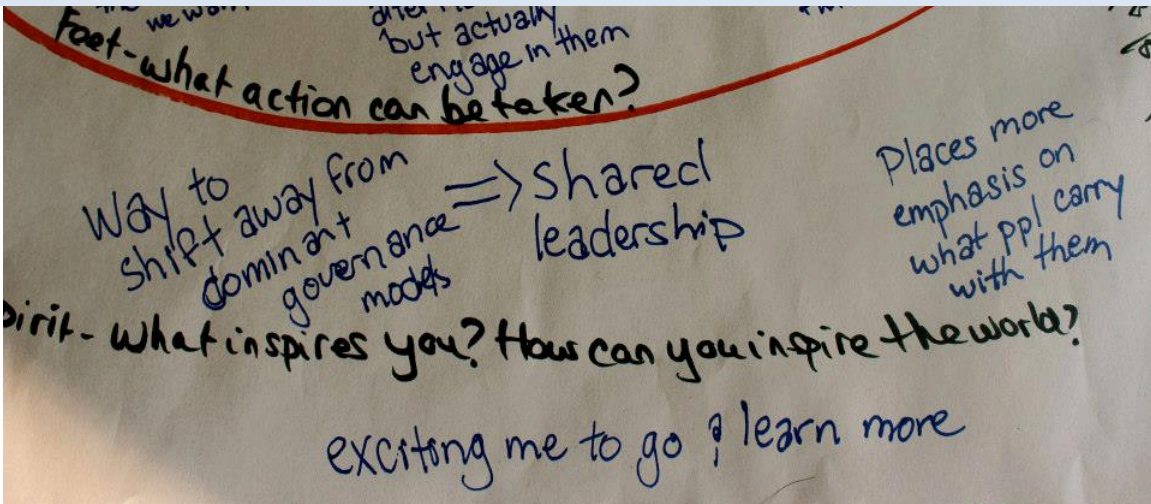 we wan
but actually
engage in them
Feet-what action can be taken?
Way to
shift away from
dominant
governance
models
=> Shared
leadership
Places more
emphasis on
what ppl carry
with them
pirit- What inspires you? How can you inspire the world?
exciting me to go & learn more